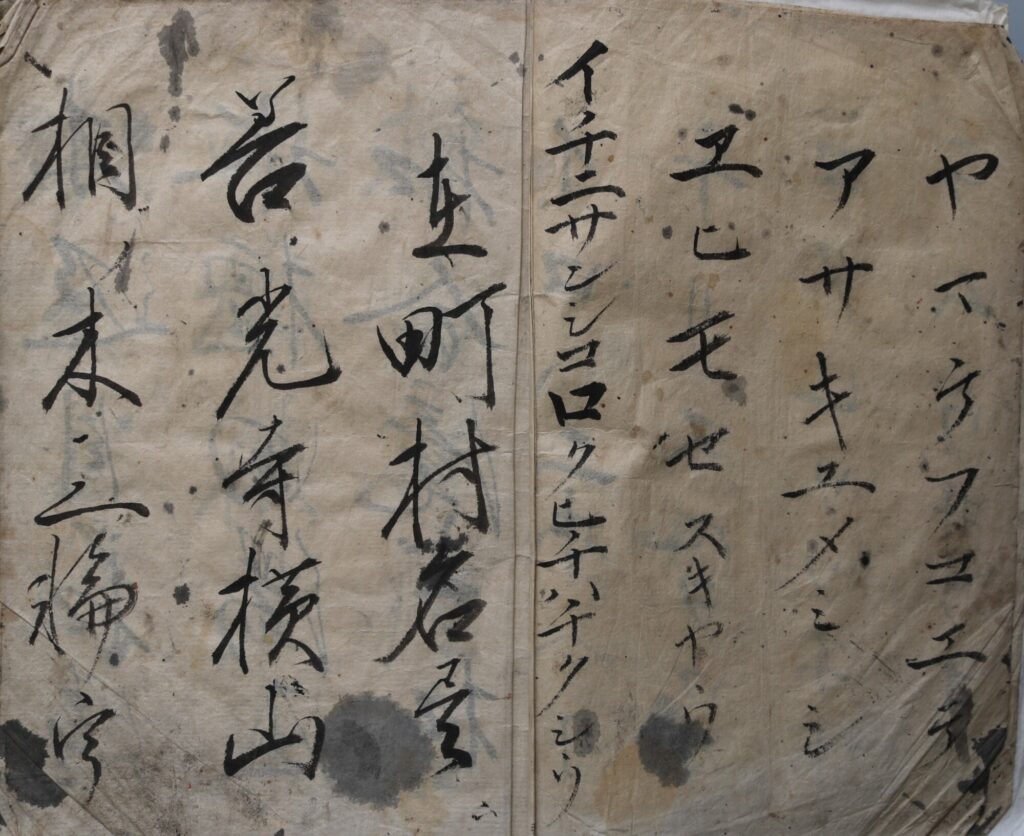 ヤマケフコエテ
アサキユメミシ
ヱヒモセスキヤウ
イチニサンシコロクヒチハチクシウ
在町村名号
善光寺横山
相ノ木三輪宇